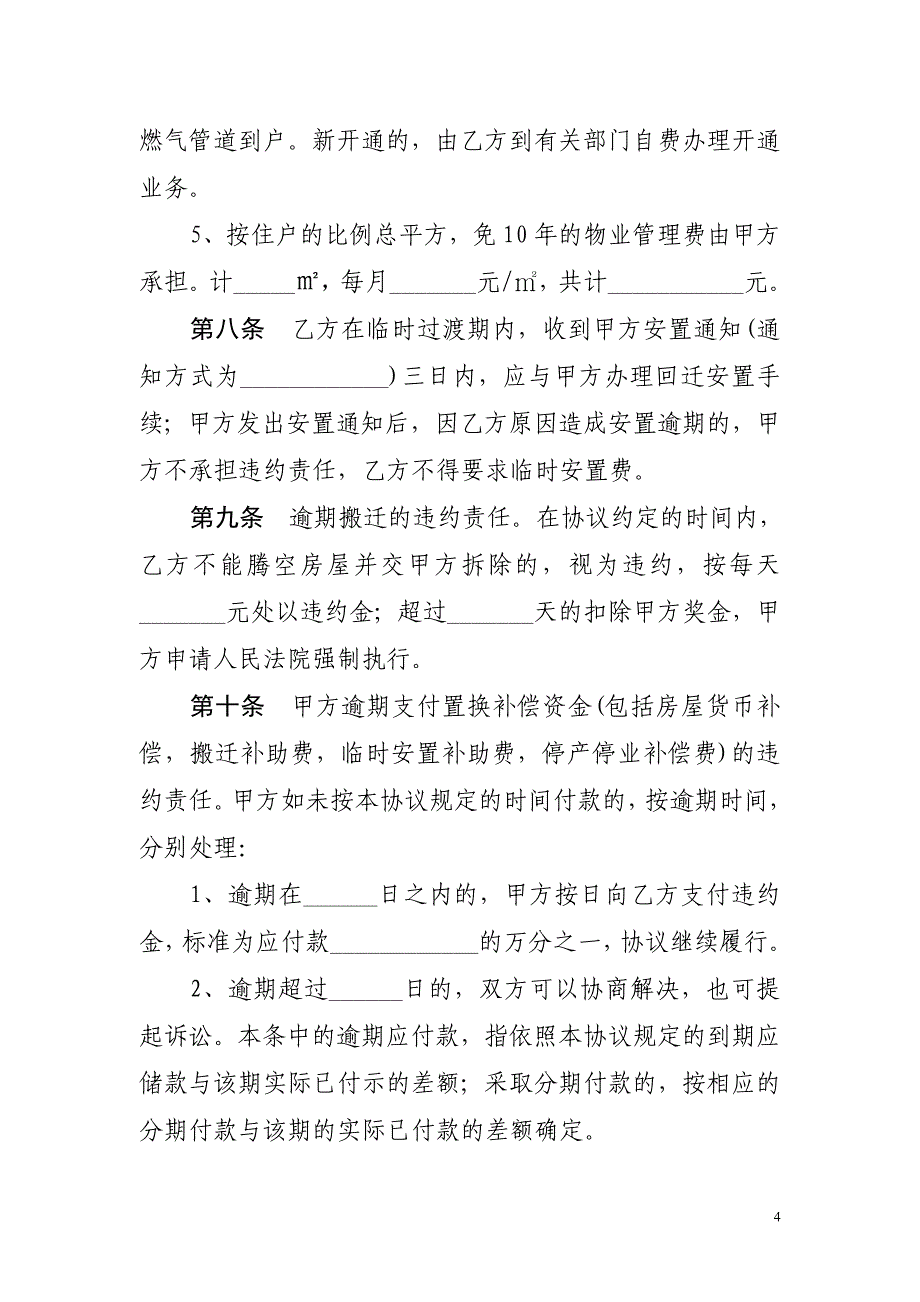 燃气管道到户。新开通的，由乙方到有关部门自费办理开通
业务。
5、按住户的比例总平方，免 10 年的物业管理费由甲方
承担。计_____㎡，每月_______元/㎡，共计___________元。
第八条　乙方在临时过渡期内，收到甲方安置通知(通
知方式为____________)三日内，应与甲方办理回迁安置手
续；甲方发出安置通知后，因乙方原因造成安置逾期的，甲
方不承担违约责任，乙方不得要求临时安置费。
第九条　逾期搬迁的违约责任。在协议约定的时间内，
乙方不能腾空房屋并交甲方拆除的，视为违约，按每天
_______元处以违约金；超过_______天的扣除甲方奖金，甲
方申请人民法院强制执行。
第十条　甲方逾期支付置换补偿资金(包括房屋货币补
偿，搬迁补助费，临时安置补助费，停产停业补偿费)的违
约责任。甲方如未按本协议规定的时间付款的，按逾期时间，
分别处理：
1、逾期在______日之内的，甲方按日向乙方支付违约
金，标准为应付款____________的万分之一，协议继续履行。
2、逾期超过______日的，双方可以协商解决，也可提
起诉讼。本条中的逾期应付款，指依照本协议规定的到期应
储款与该期实际已付示的差额；采取分期付款的，按相应的
分期付款与该期的实际已付款的差额确定。
4